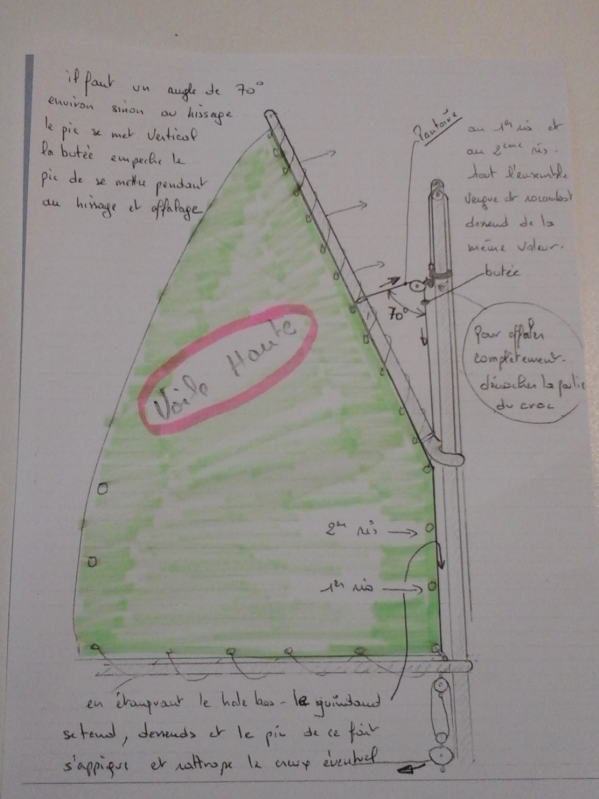 il faut un angle de 70°
environ sinon au hissage
le pic se met vertical
la butée empeche le
pic de se mettre pendant
au hissage et affalage
Pantoire
au 1er ris et
au 2ème ris.
tout l'ensemble
vergue et rocambot
descend de la
même valeur.
butée
70°
Pour affaler
complètement.
décrocher la poulie
du croc
Voile Haute
2me ris
1er ris
en étarquant le hale bas - le guindant
se tend, descends et le pic de ce fait
s'applique et rattrape le creux éventuel